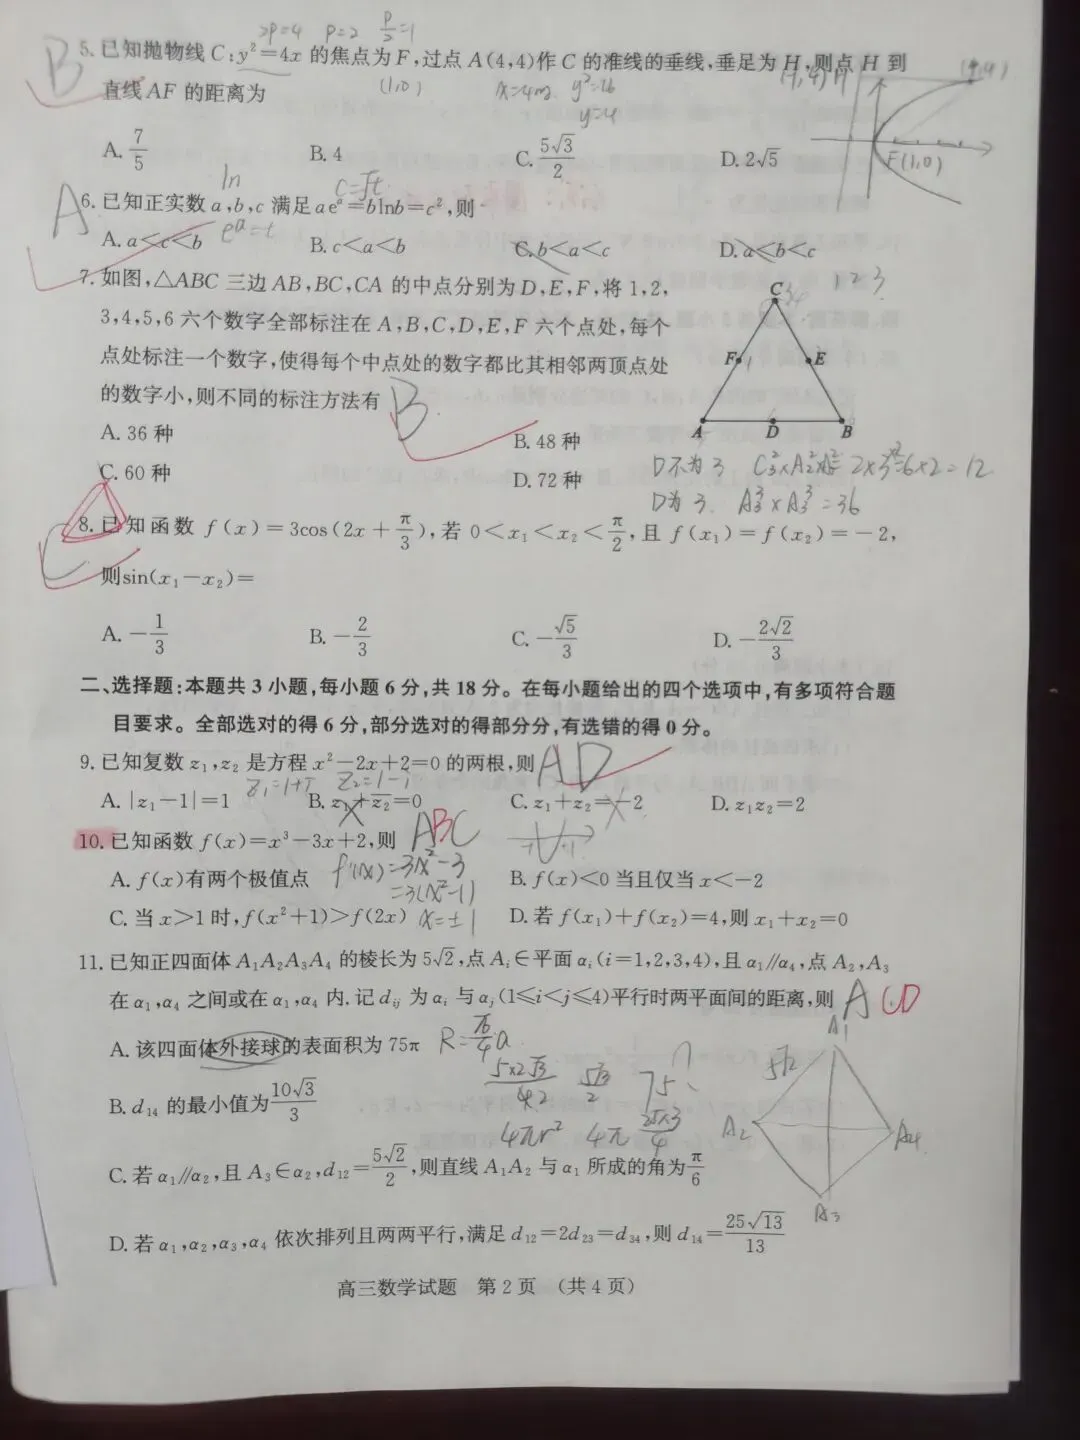 2p=4 p=2 p/2=1
5.已知抛物线C:y²=4x的焦点为F,过点A(4,4)作C的准线的垂线,垂足为H,则点H到
B
直线AF的距离为
(1,0) x=4时 y²=16
y=4
(-1,4)H (4,4)
F(1,0)
A. 7/5 B. 4 C. 5√3/2 D. 2√5
ln c=√t
6.已知正实数a,b,c满足aeᵃ=blnb=c²,则
A
A. a<c<b B. c<a<b C. b<a<c D. a<b<c
eᵃ=t
7.如图,△ABC三边AB,BC,CA的中点分别为D,E,F,将1,2,
3,4,5,6六个数字全部标注在A,B,C,D,E,F六个点处,每个
点处标注一个数字,使得每个中点处的数字都比其相邻两顶点处
的数字小,则不同的标注方法有
B
1 2 3
C
F E
A D B
A. 36种 B. 48种
C. 60种 D. 72种
D为3. A₃³×A₃³=36
8.已知函数f(x)=3cos(2x+π/3),若0<x₁<x₂<π/2,且f(x₁)=f(x₂)=-2,
C
则sin(x₁-x₂)=
A. -1/3 B. -2/3 C. -√5/3 D. -2√2/3
二、选择题:本题共3小题,每小题6分,共18分。在每小题给出的四个选项中,有多项符合题
目要求。全部选对的得6分,部分选对的得部分分,有选错的得0分。
9.已知复数z₁,z₂是方程x²-2x+2=0的两根,则
AD
z₁=1+i z₂=1-i
A. |z₁-1|=1 B. z₁+z̄₂=0 C. z₁+z₂=-2 D. z₁z₂=2
10.已知函数f(x)=x³-3x+2,则
ABC
A. f(x)有两个极值点 B. f(x)<0当且仅当x<-2
f'(x)=3x²-3
=3(x²-1)
C. 当x>1时,f(x²+1)>f(2x) D. 若f(x₁)+f(x₂)=4,则x₁+x₂=0
x=±1
11.已知正四面体A₁A₂A₃A₄的棱长为5√2,点Aᵢ∈平面αᵢ(i=1,2,3,4),且α₁//α₄,点A₂,A₃
在α₁,α₄之间或在α₁,α₄内.记dᵢⱼ为αᵢ与αⱼ(1≤i<j≤4)平行时两平面间的距离,则
ACD
A. 该四面体外接球的表面积为75π
R=√6/4 a
5×2√3/4·2 5√3/2 75
B. d₁₄的最小值为10√3/3
4πr² 4π 25×3/4
A₁
5√2
A₂ A₄
A₃
C. 若α₁//α₂,且A₃∈α₂,d₁₂=5√2/2,则直线A₁A₂与α₁所成的角为π/6
D. 若α₁,α₂,α₃,α₄依次排列且两两平行,满足d₁₂=2d₂₃=d₃₄,则d₁₄=25√13/13
高三数学试题 第2页 (共4页)